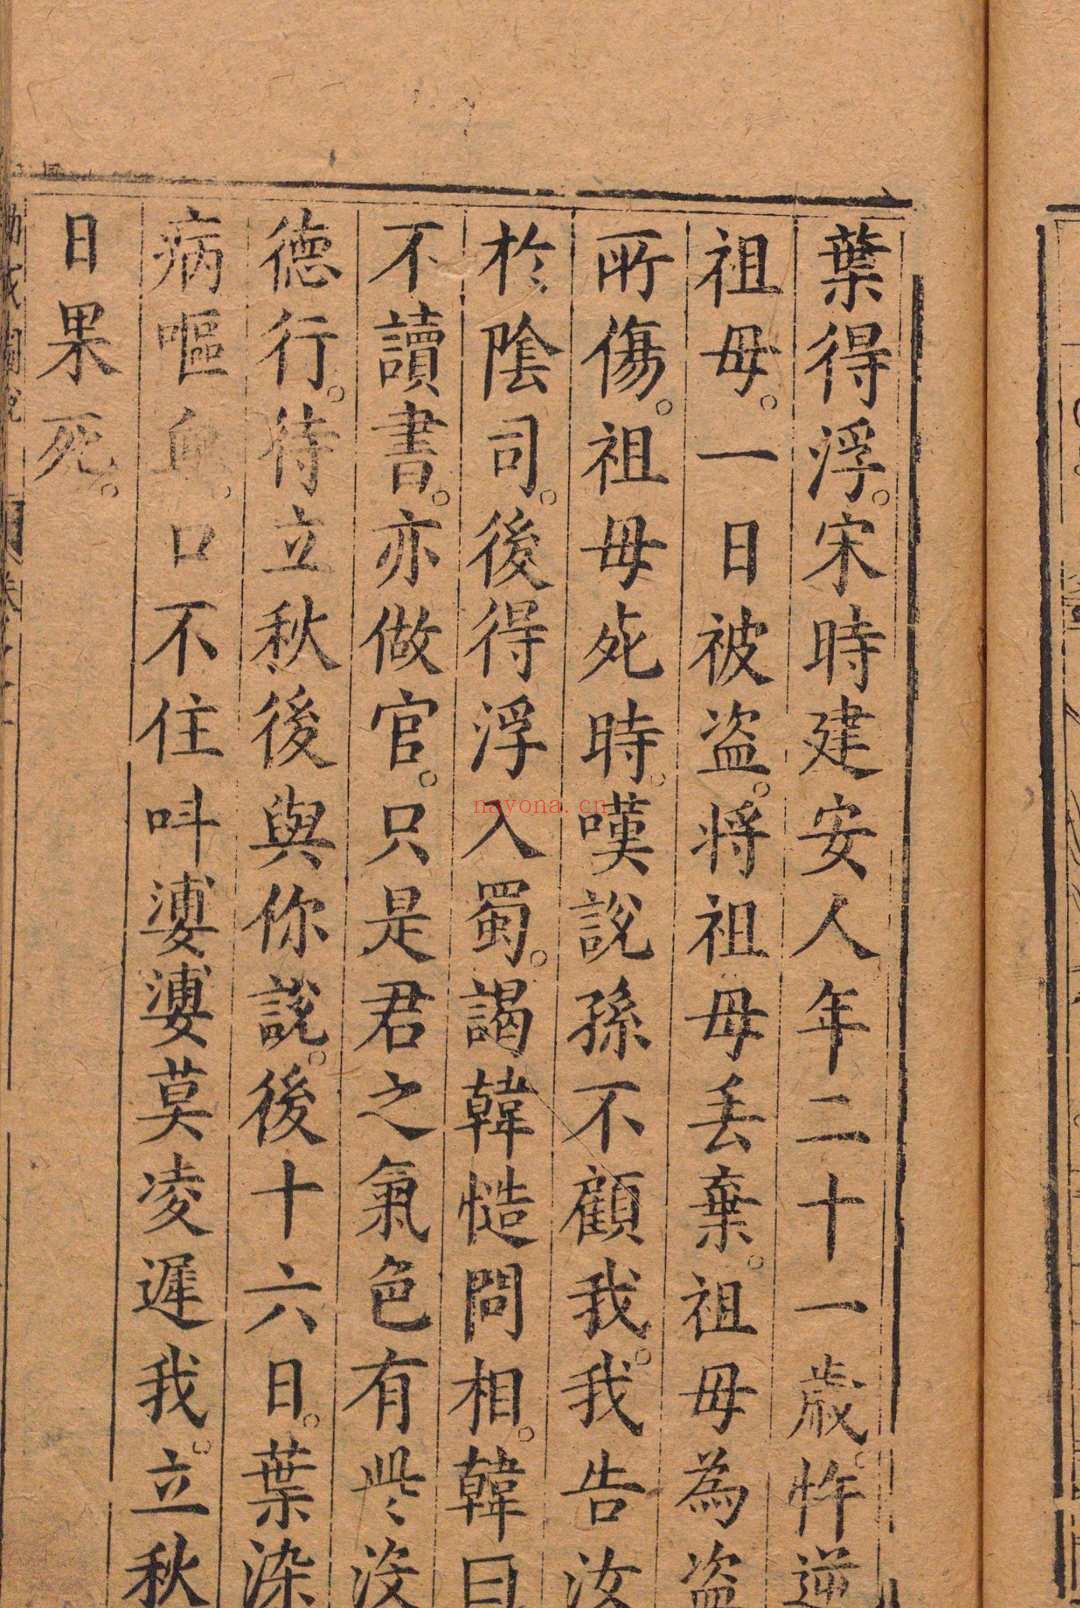 葉得浮。宋時建安人年二十一歲。忤逆
祖母。一日被盜。將祖母丟棄。祖母為盜
所傷。祖母死時。嘆說孫不顧我。我告汝
於陰司。後得浮入蜀。謁韓慥問相。韓曰
不讀書。亦做官。只是君之氣色有些沒
德行。待立秋後與你說。後十六日。葉染
病嘔血。口不住呌婆婆莫凌遲我。立秋
日果死。
nayona.cn